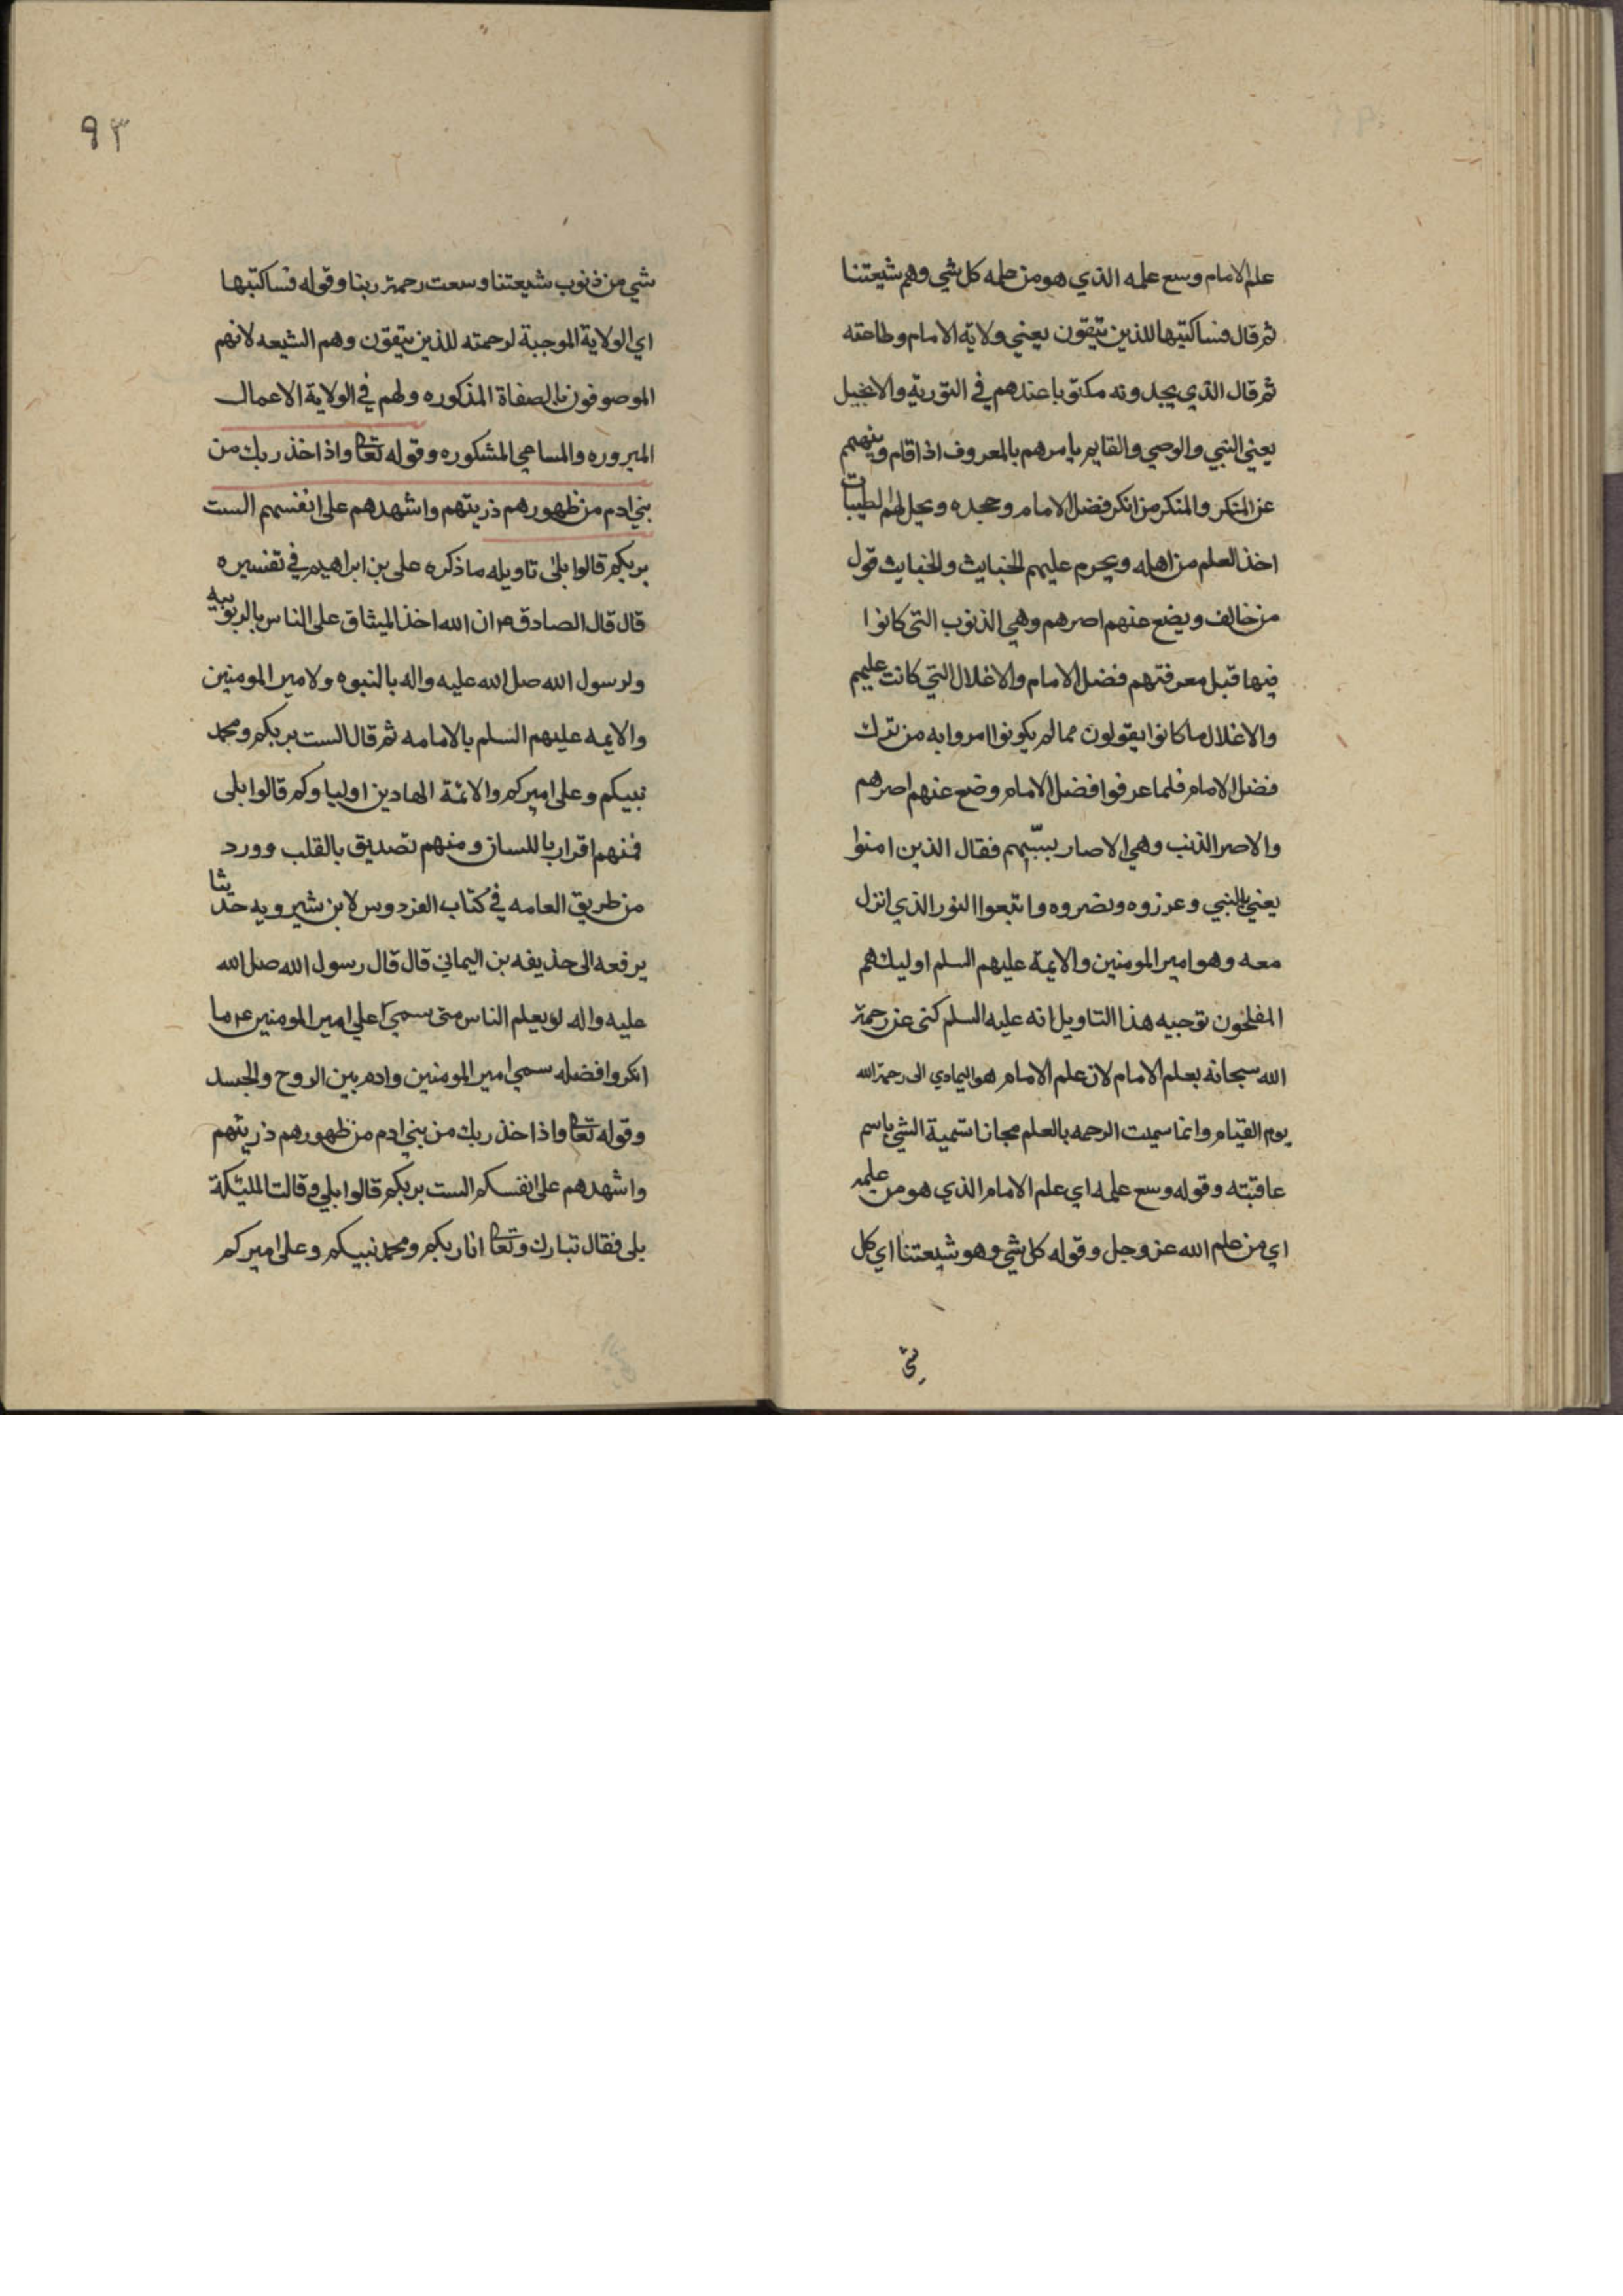 علم الامام وسع علمه الذي هو من علمه كل شي وهم شيعتنا
ثم قال فساكتبها للذين يتقون يعني ولاية الامام وطاعته
ثم قال الذي يجدونه مكتوبا عندهم في التورية والانجيل
يعني النبي والوصي والقايم يامرهم بالمعروف اذا قام وينههم
عن المنكر والمنكر من انكر فضل الامام وجحده ويحل لهم الطيبات
اخذ العلم من اهله ويحرم عليهم الخبايث والخبايث قول
من خالف ويضع عنهم اصرهم وهي الذنوب التي كانوا
فيها قبل معرفتهم فضل الامام والاغلال التي كانت عليهم
والاغلال ما كانوا يقولون مما لم يكونوا امروا به من ترك
فضل الامام فلما عرفوا فضل الامام وضع عنهم اصرهم
والاصر الذنب وهي الاصار فقال الذين امنوا
يعني بالنبي وعزروه ونصروه واتبعوا النور الذي انزل
معه وهو امير المومنين والايمة عليهم السلم اوليك هم
المفلحون توجيه هذا التاويل انه عليه السلم كنى عن رحمة
الله سبحانه بعلم الامام لان علم الامام هو الهادي الى رحمة الله
يوم القيام وانما سميت الرحمه بالعلم مجازا تسمية الشي باسم
عاقبته وقوله وسع علمه اي علم الامام الذي هو من علمه
اي من علم الله عز وجل وقوله كل شي وهو شيعتنا اي كل
شي
٩٣
شي من ذنوب شيعتنا وسعت رحمة ربنا وقوله فساكتبها
اي الولاية الموجبة لرحمته للذين يتقون وهم الشيعه لانهم
الموصوفون بالصفاة المذكوره ولهم في الولاية الاعمال
المبروره والمساعي المشكوره وقوله تعا واذ اخذ ربك من
بني ادم من ظهورهم ذريتهم واشهدهم على انفسهم الست
بربكم قالوا بلى تاويله ما ذكره علي بن ابراهيم في تفسيره
قال قال الصادق ع ان الله اخذ الميثاق على الناس بالربوبيه
ولرسول الله صل الله عليه واله بالنبوه ولامير المومنين
والايمه عليهم السلم بالامامه ثم قال الست بربكم ومحمد
نبيكم وعلي اميركم والائمة الهادين اولياوكم قالوا بلى
فمنهم اقرار باللسان ومنهم تصديق بالقلب وورد
من طريق العامه في كتاب الفردوس لابن شيرويه حديثا
يرفعه الى حذيفه بن اليماني قال قال رسول الله صل الله
عليه واله لو يعلم الناس متى سمي علي امير المومنين ع ما
انكروا فضله سمي امير المومنين وادم بين الروح والجسد
وقوله تعا واذ اخذ ربك من بني ادم من ظهورهم ذريتهم
واشهدهم على انفسكم الست بربكم قالوا بلى وقالت المليكة
بلى فقال تبارك وتعا انا ربكم ومحمد نبيكم وعلي اميركم